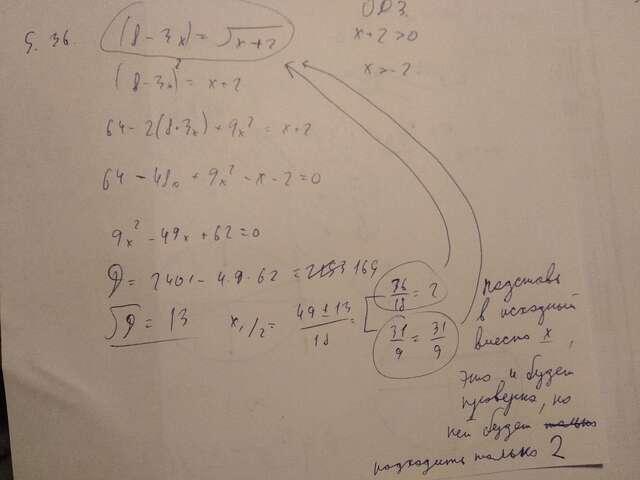 5.36. (8 - 3x) = √x+2
ОДЗ.
x+2 > 0
x > -2
(8 - 3x)² = x+2
64 - 2(8·3x) + 9x² = x+2
64 - 48x + 9x² - x - 2 = 0
9x² - 49x + 62 = 0
D = 2401 - 4·9·62 = 169
√D = 13 x₁/₂ = 49 ± 13 / 18 = 36/18 = 2
31/9 = 31/9
подставь
в исходный
вместо x,
это и будет
проверка, но
ней будет только
подходить только 2